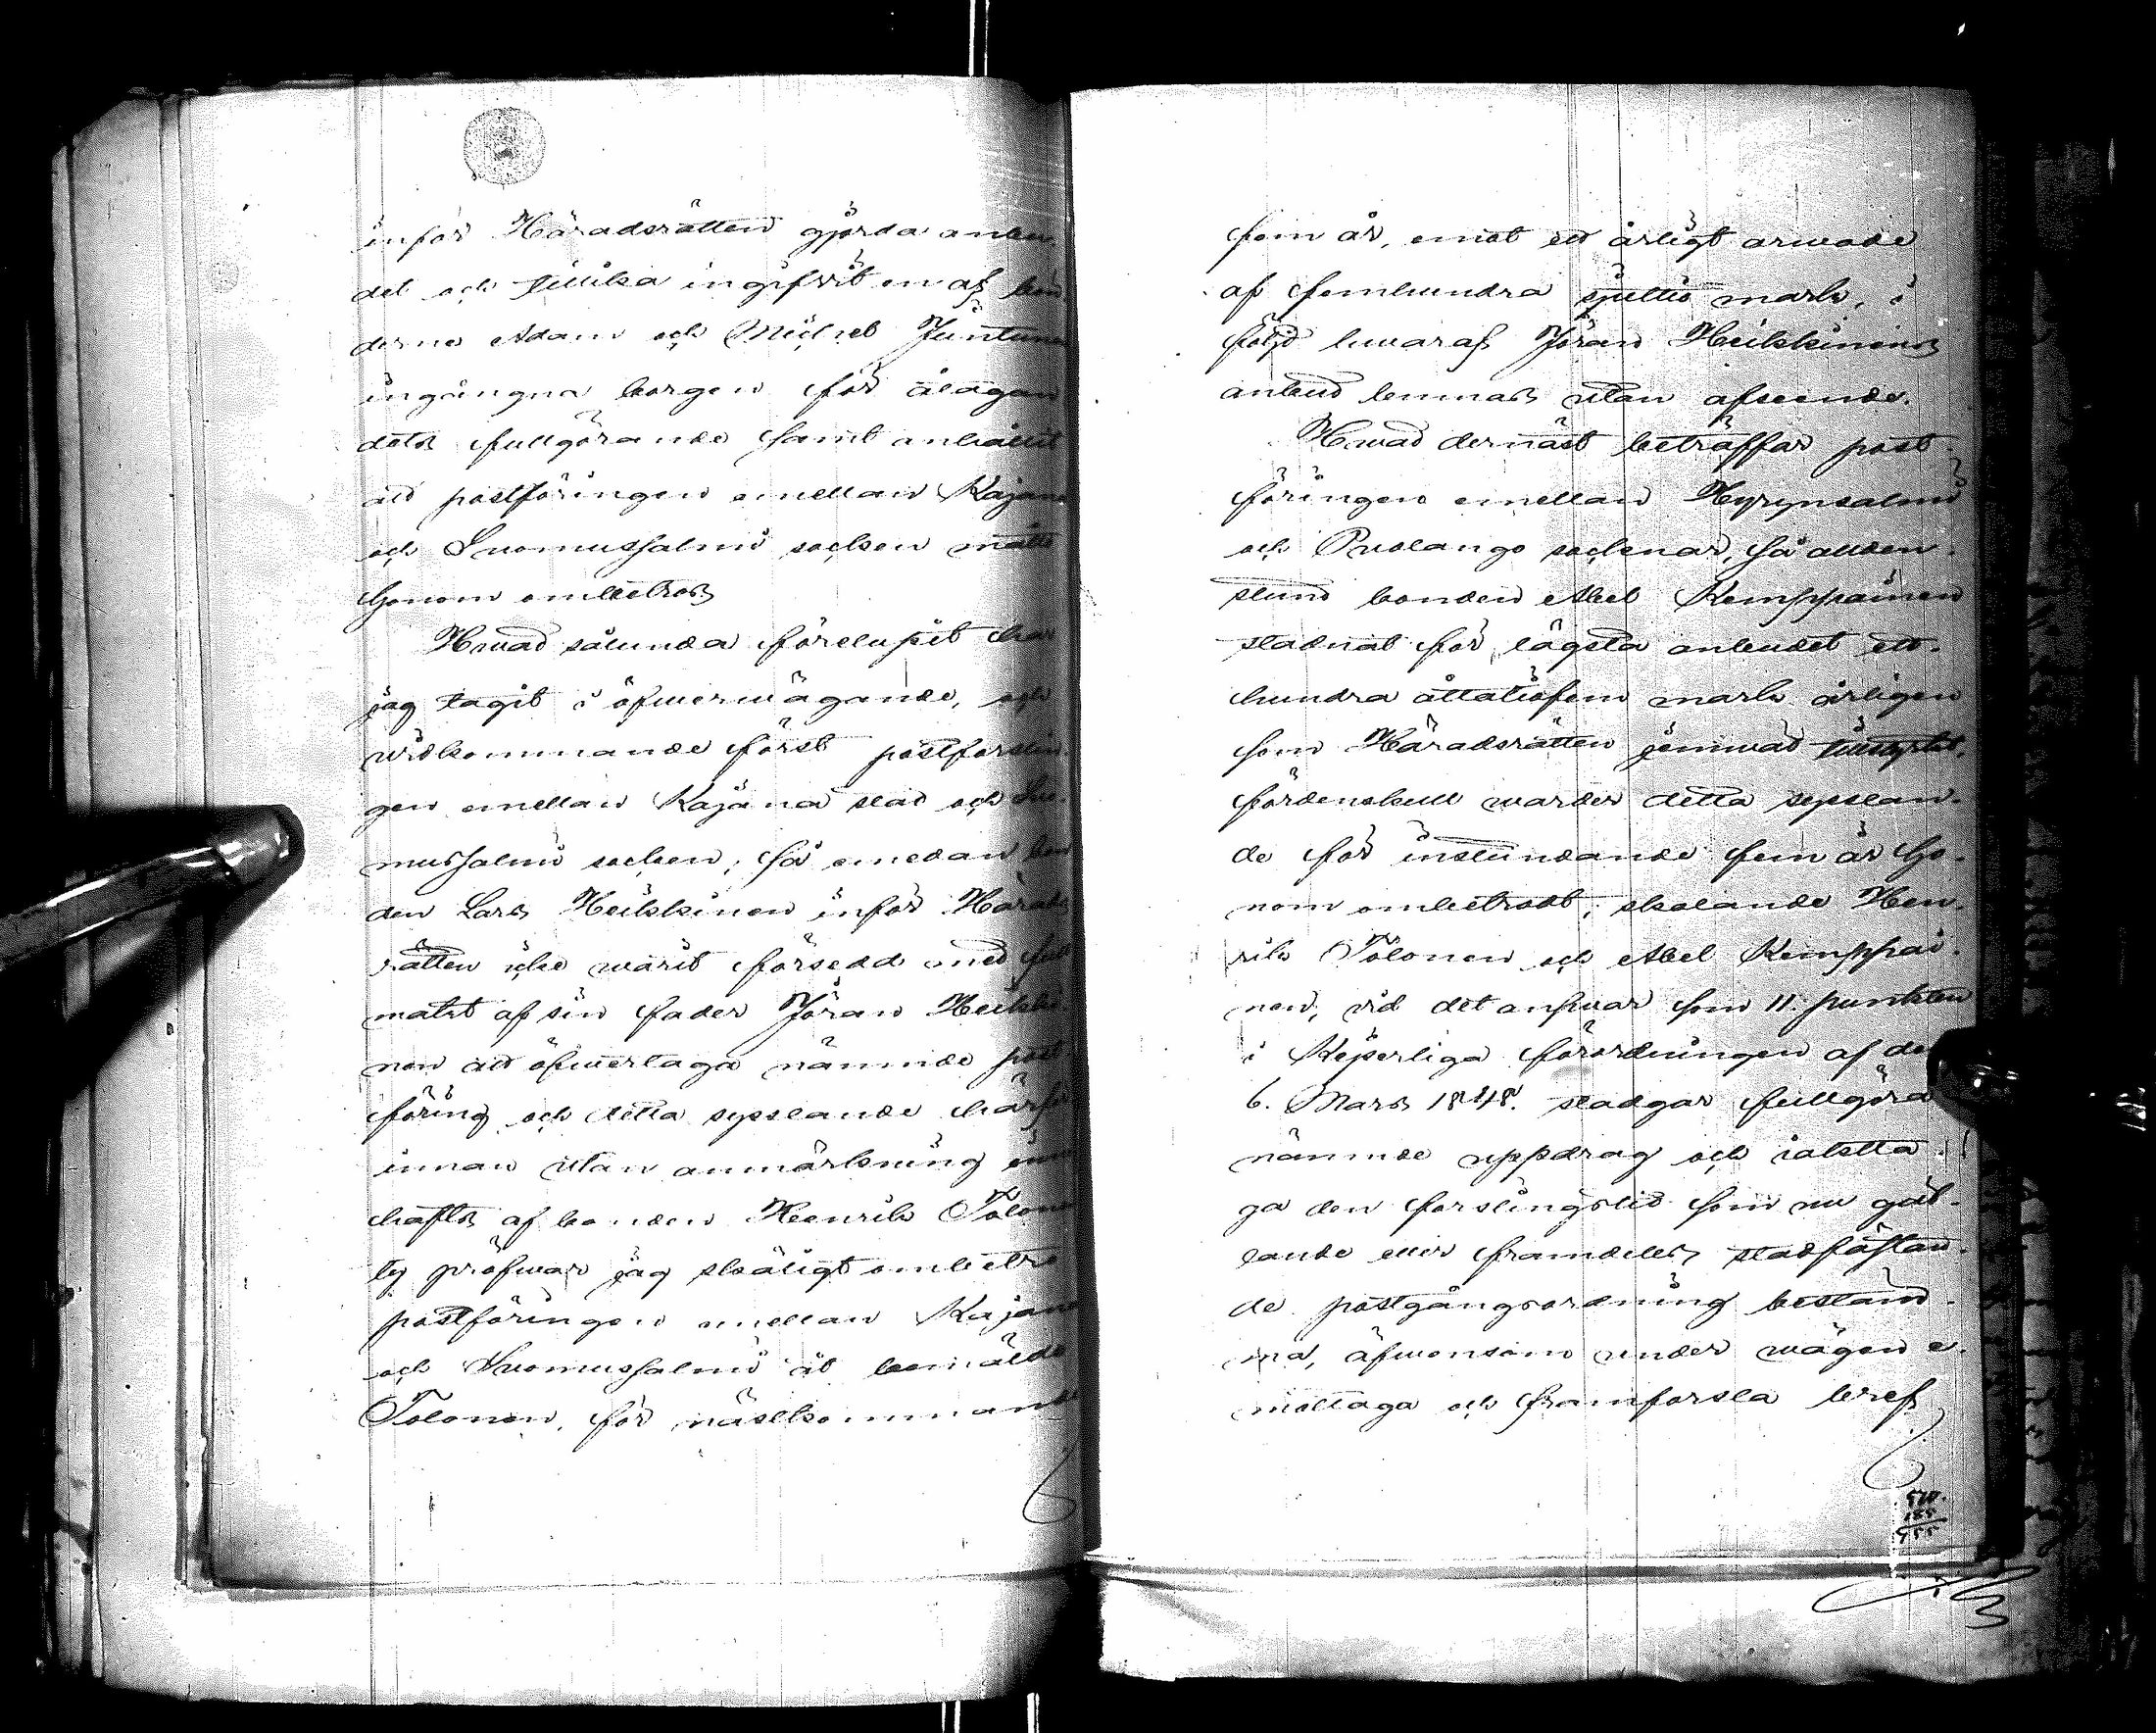 inför Häradsrätten gjorda anbu-
det och tillika ingifvit en af bön-
derne Adam och Michel Juntunen
ingången borgen för åliggan
dets fullgörande samt anhållit
att postföringen emellan Kajana
och Suomussalmi socken måtte
honom ombetros
Hwad sålunda förelupit har
jag tagit i öfwerwägande, och
widkommande först postforslin
gen emellan Kajana stad och Suo-
mussalmi socken; så emedan bon
den Lars Heikkinen inför Härads
rätten icke warit försedd med full
makt af sin fader Jöran Heikki-
nen att öfwertaga nämnde post
föring och detta sysslande härför
innan utan anmärkning inne
hafts af bonden Henrik Tolonen
ty pröfwar jag skäligt ombetro
postföringen emellan Kajana
och Suomussalmi åt bemälde
Tolonen, för nästkommande
fem år, emot ett årligt arwode
af femhundra sjuttio mark, i
följd hwaraf Jöran Heikkinens
anbud lemnas utan afseende.
Hwad dernäst beträffar post-
föringen emellan Hyrynsalmi
och Puolango socknar, så alden-
stund bonden Abel Kemppainen
stadnat för lägsta anbudet ett-
hundra åttatiofem mark årligen
som Häradsrätten jemwäl tillstyrkt,
fördenskull warder detta sysslan-
de för instundande fem år ho-
nom ombetrodt; skolande Hen-
rik Tolonen och Abel Kemppai-
nen, vid det answar som 11. punkten
i Kejserliga förordningen af den
6. Mars 1848. stadgar fullgöra
nämnde uppdrag och iaktta-
ga den forslingstid som nu gäl-
lande eller framdeles stadfästan-
de postgångsordning bestäm-
ma, äfwensom under wägen e-
mottaga och framforsla bref
570.
185
755